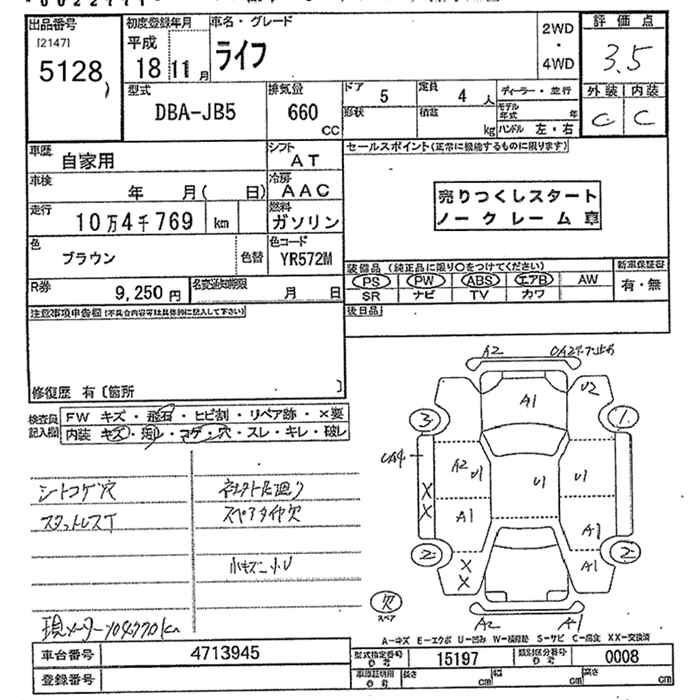 出品番号 初度登録年月 車名・グレード 2WD・4WD 評価点
(2147)
5128 平成 18 11月 ライフ 3.5
型式 DBA-JB5 排気量 660 CC ドア 5 定員 4 人 ディーラー・並行 外装 内装
形状 積載 kg モデル年式 年 C C
ハンドル 左・右
車歴 自家用 シフト AT セールスポイント(正常に機能するものに限ります)
車検 年 月( 日) 冷房 AAC 売りつくしスタート
走行 10万4千769 km 燃料 ガソリン ノークレーム車
色 ブラウン 色替 色コード YR572M
装備品 (純正品に限り〇をつけてください) 新車保証書
PS PW ABS エアB AW 有・無
SR ナビ TV カワ
R券 9,250円 名変通知期限 月 日 後日品
注意事項申告欄(不具合内容等は具体的に記入して下さい)
修復歴 有〔箇所 〕
検査員記入欄 FW キズ・飛石・ヒビ割・リペア跡・×要
内装 キズ・汚レ・コゲ・穴・スレ・キレ・破レ
シートコゲ穴
スタットレスT スペアタイヤ欠
小キズ 小U
現メーター104770km
A2
A1 U2
3 1
UA4 A2 U1 U1 U1
X
X A1 A1
2 X A1 2
X
欠 スペア A2 A1
A-キズ E-エクボ U-凹み W-補修跡 S-サビ C-腐食 XX-交換済
車台番号 4713945 型式指定番号 参考 15197 類別区分番号 参考 0008
登録番号 車庫証明用 参考 長さ cm 幅 cm 高さ cm